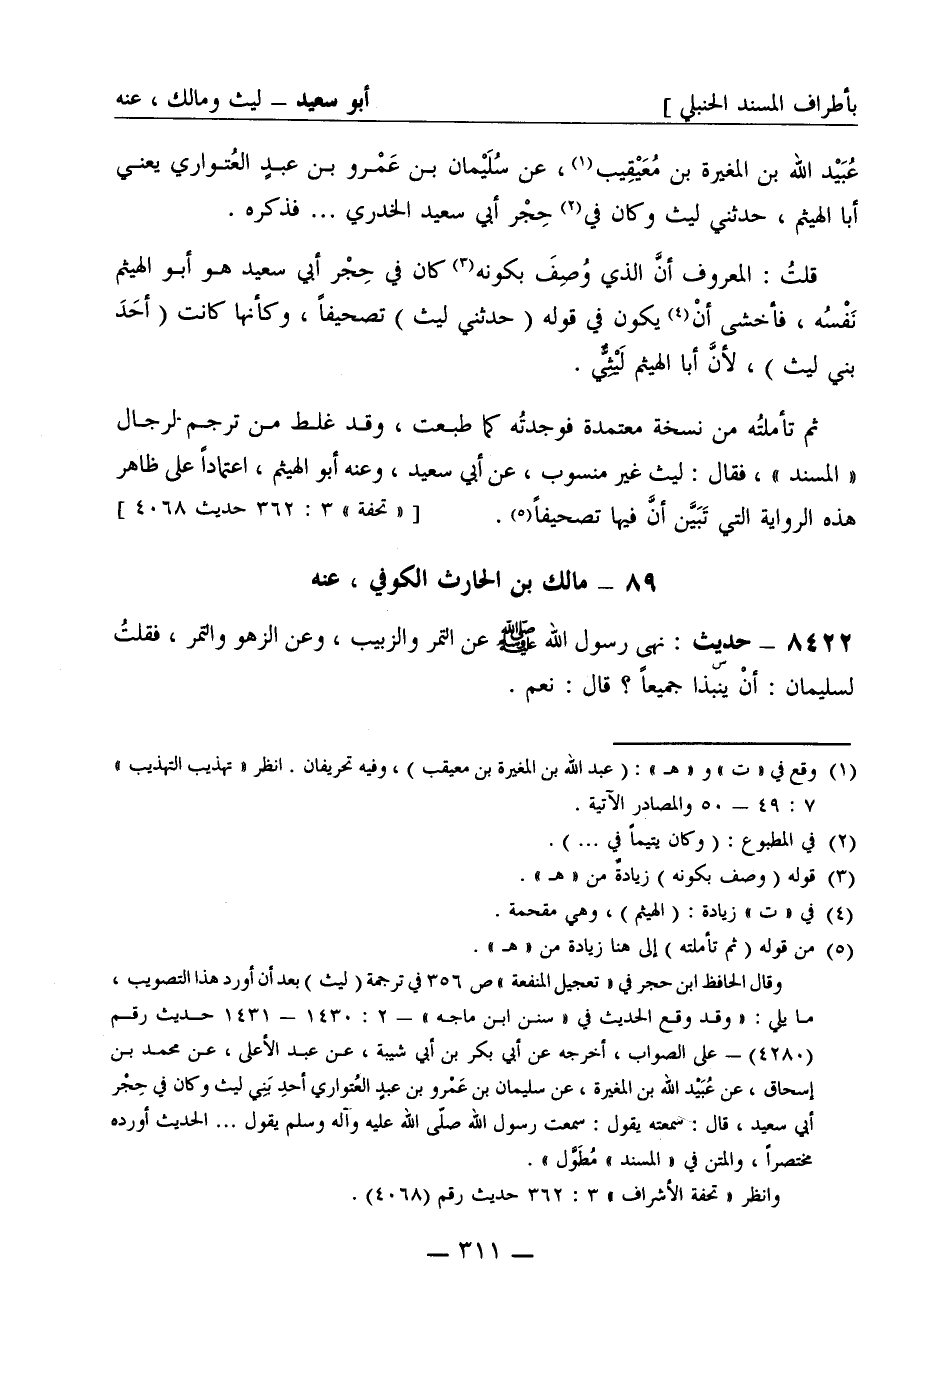 بأطراف المسند الحنبلي ] أبو سعيد – ليث ومالك ، عنه
عُبَيْد الله بن المغيرة بن مُعَيْقِيب(١) ، عن سُلَيْمان بن عَمْرو بن عبدٍ العُتواري يعني
أبا الهيثم ، حدثني ليث وكان في(٢) حِجْر أبي سعيد الخدري ... فذكره .
قلتُ : المعروف أنَّ الذي وُصِفَ بكونه(٣) كان في حِجْر أبي سعيد هو أبو الهيثم
نَفْسُه ، فأخشى أنْ(٤) يكون في قوله ( حدثني ليث ) تصحيفاً ، وكأنها كانت ( أحَدَ
بني ليث ) ، لأنَّ أبا الهيثم لَيْثِيٌّ .
ثم تأملتُه من نسخة معتمدة فوجدتُه كما طبعت ، وقد غلط من ترجم لرجال
« المسند » ، فقال : ليث غير منسوب ، عن أبي سعيد ، وعنه أبو الهيثم ، اعتماداً على ظاهر
هذه الرواية التي تَبَيَّن أنَّ فيها تصحيفاً(٥) . [ « تحفة » ٣ : ٣٦٢ حديث ٤٠٦٨ ]
٨٩ – مالك بن الحارث الكوفي ، عنه
٨٤٢٢ – حديث : نهى رسول الله ﷺ عن التمر والزبيب ، وعن الزهو والتمر ، فقلتُ
لسليمان : أنْ ينبذا جميعاً ؟ قال : نعم .
(١) وقع في « ت » و « هـ » : ( عبد الله بن المغيرة بن معيقب ) ، وفيه تحريفان . انظر « تهذيب التهذيب »
٧ : ٤٩ – ٥٠ والمصادر الآتية .
(٢) في المطبوع : ( وكان يتيماً في ... ) .
(٣) قوله ( وصف بكونه ) زيادةٌ من « هـ » .
(٤) في « ت » زيادة : ( الهيثم ) ، وهي مقحمة .
(٥) من قوله ( ثم تأملته ) إلى هنا زيادة من « هـ » .
وقال الحافظ ابن حجر في « تعجيل المنفعة » ص ٣٥٦ في ترجمة ( ليث ) بعد أن أورد هذا التصويب ،
ما يلي : « وقد وقع الحديث في « سنن ابن ماجه » – ٢ : ١٤٣٠ – ١٤٣١ حديث رقم
(٤٢٨٠) – على الصواب ، أخرجه عن أبي بكر بن أبي شيبة ، عن عبد الأعلى ، عن محمد بن
إسحاق ، عن عُبَيْد الله بن المغيرة ، عن سليمان بن عَمْرو بن عبدٍ العُتواري أحدِ بَنِي ليث وكان في حِجْر
أبي سعيد ، قال : سمعته يقول : سمعت رسول الله صلّى الله عليه وآله وسلم يقول ... الحديث أورده
مختصراً ، والمتن في « المسند » مُطَوَّل » .
وانظر « تحفة الأشراف » ٣ : ٣٦٢ حديث رقم (٤٠٦٨) .
– ٣١١ –